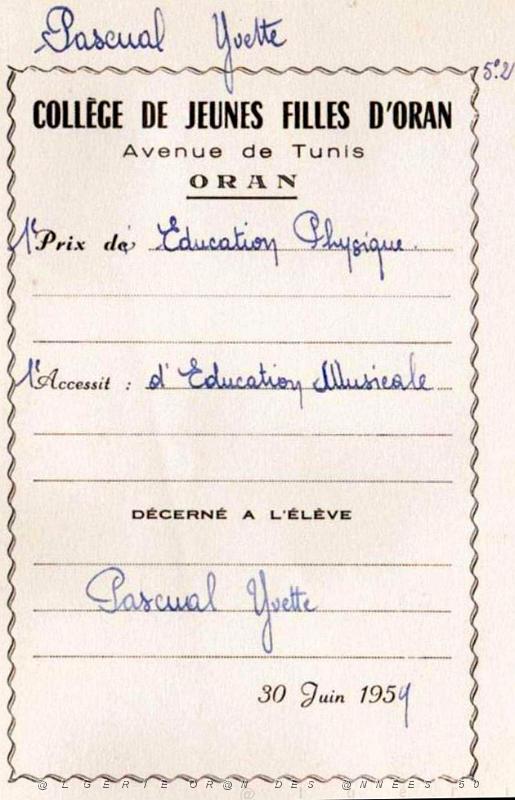 Pascual Yvette
5e2
COLLÈGE DE JEUNES FILLES D'ORAN
Avenue de Tunis
ORAN
1er Prix de d' Education Physique.
1er Accessit : d' Education Musicale
DÉCERNÉ A L'ÉLÈVE
Pascual Yvette
30 Juin 1954
@LGERIE OR@N DES @NNEES 50